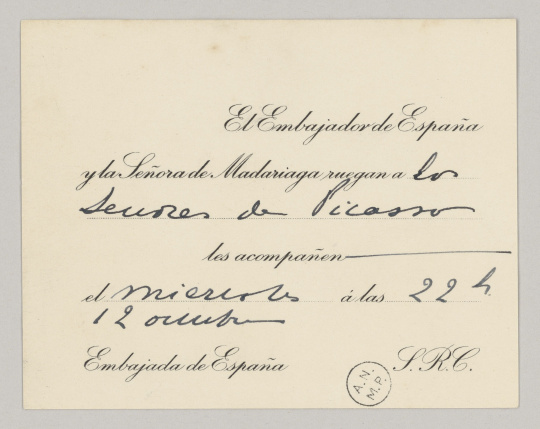 El Embajador de España
y la Señora de Madariaga ruegan a los
Señores de Picasso
les acompañen
el miercoles á las 22 h.
12 octubre
Embajada de España S. R. C.
A.N.
M.P.